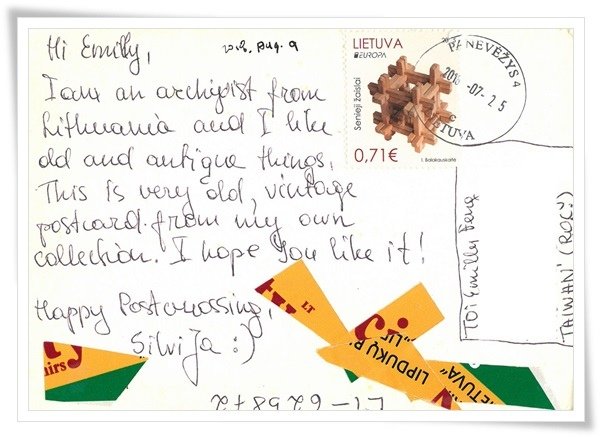 Hi Emilly,
2018, Aug. 9
I am an archivist from
Lithuania and I like
old and antique things.
This is very old, vintage
postcard from my own
collection. I hope you like it!
Happy Postcrossing,
Silvija :)
LIETUVA
EUROPA
Senieji žaislai
0,71€
I. Balakauskaitė
PANEVĖŽYS 4
07-25
LIETUVA
TO: Emilly Feng
TAIWAN (ROC)
LT
LIPDUKŲ